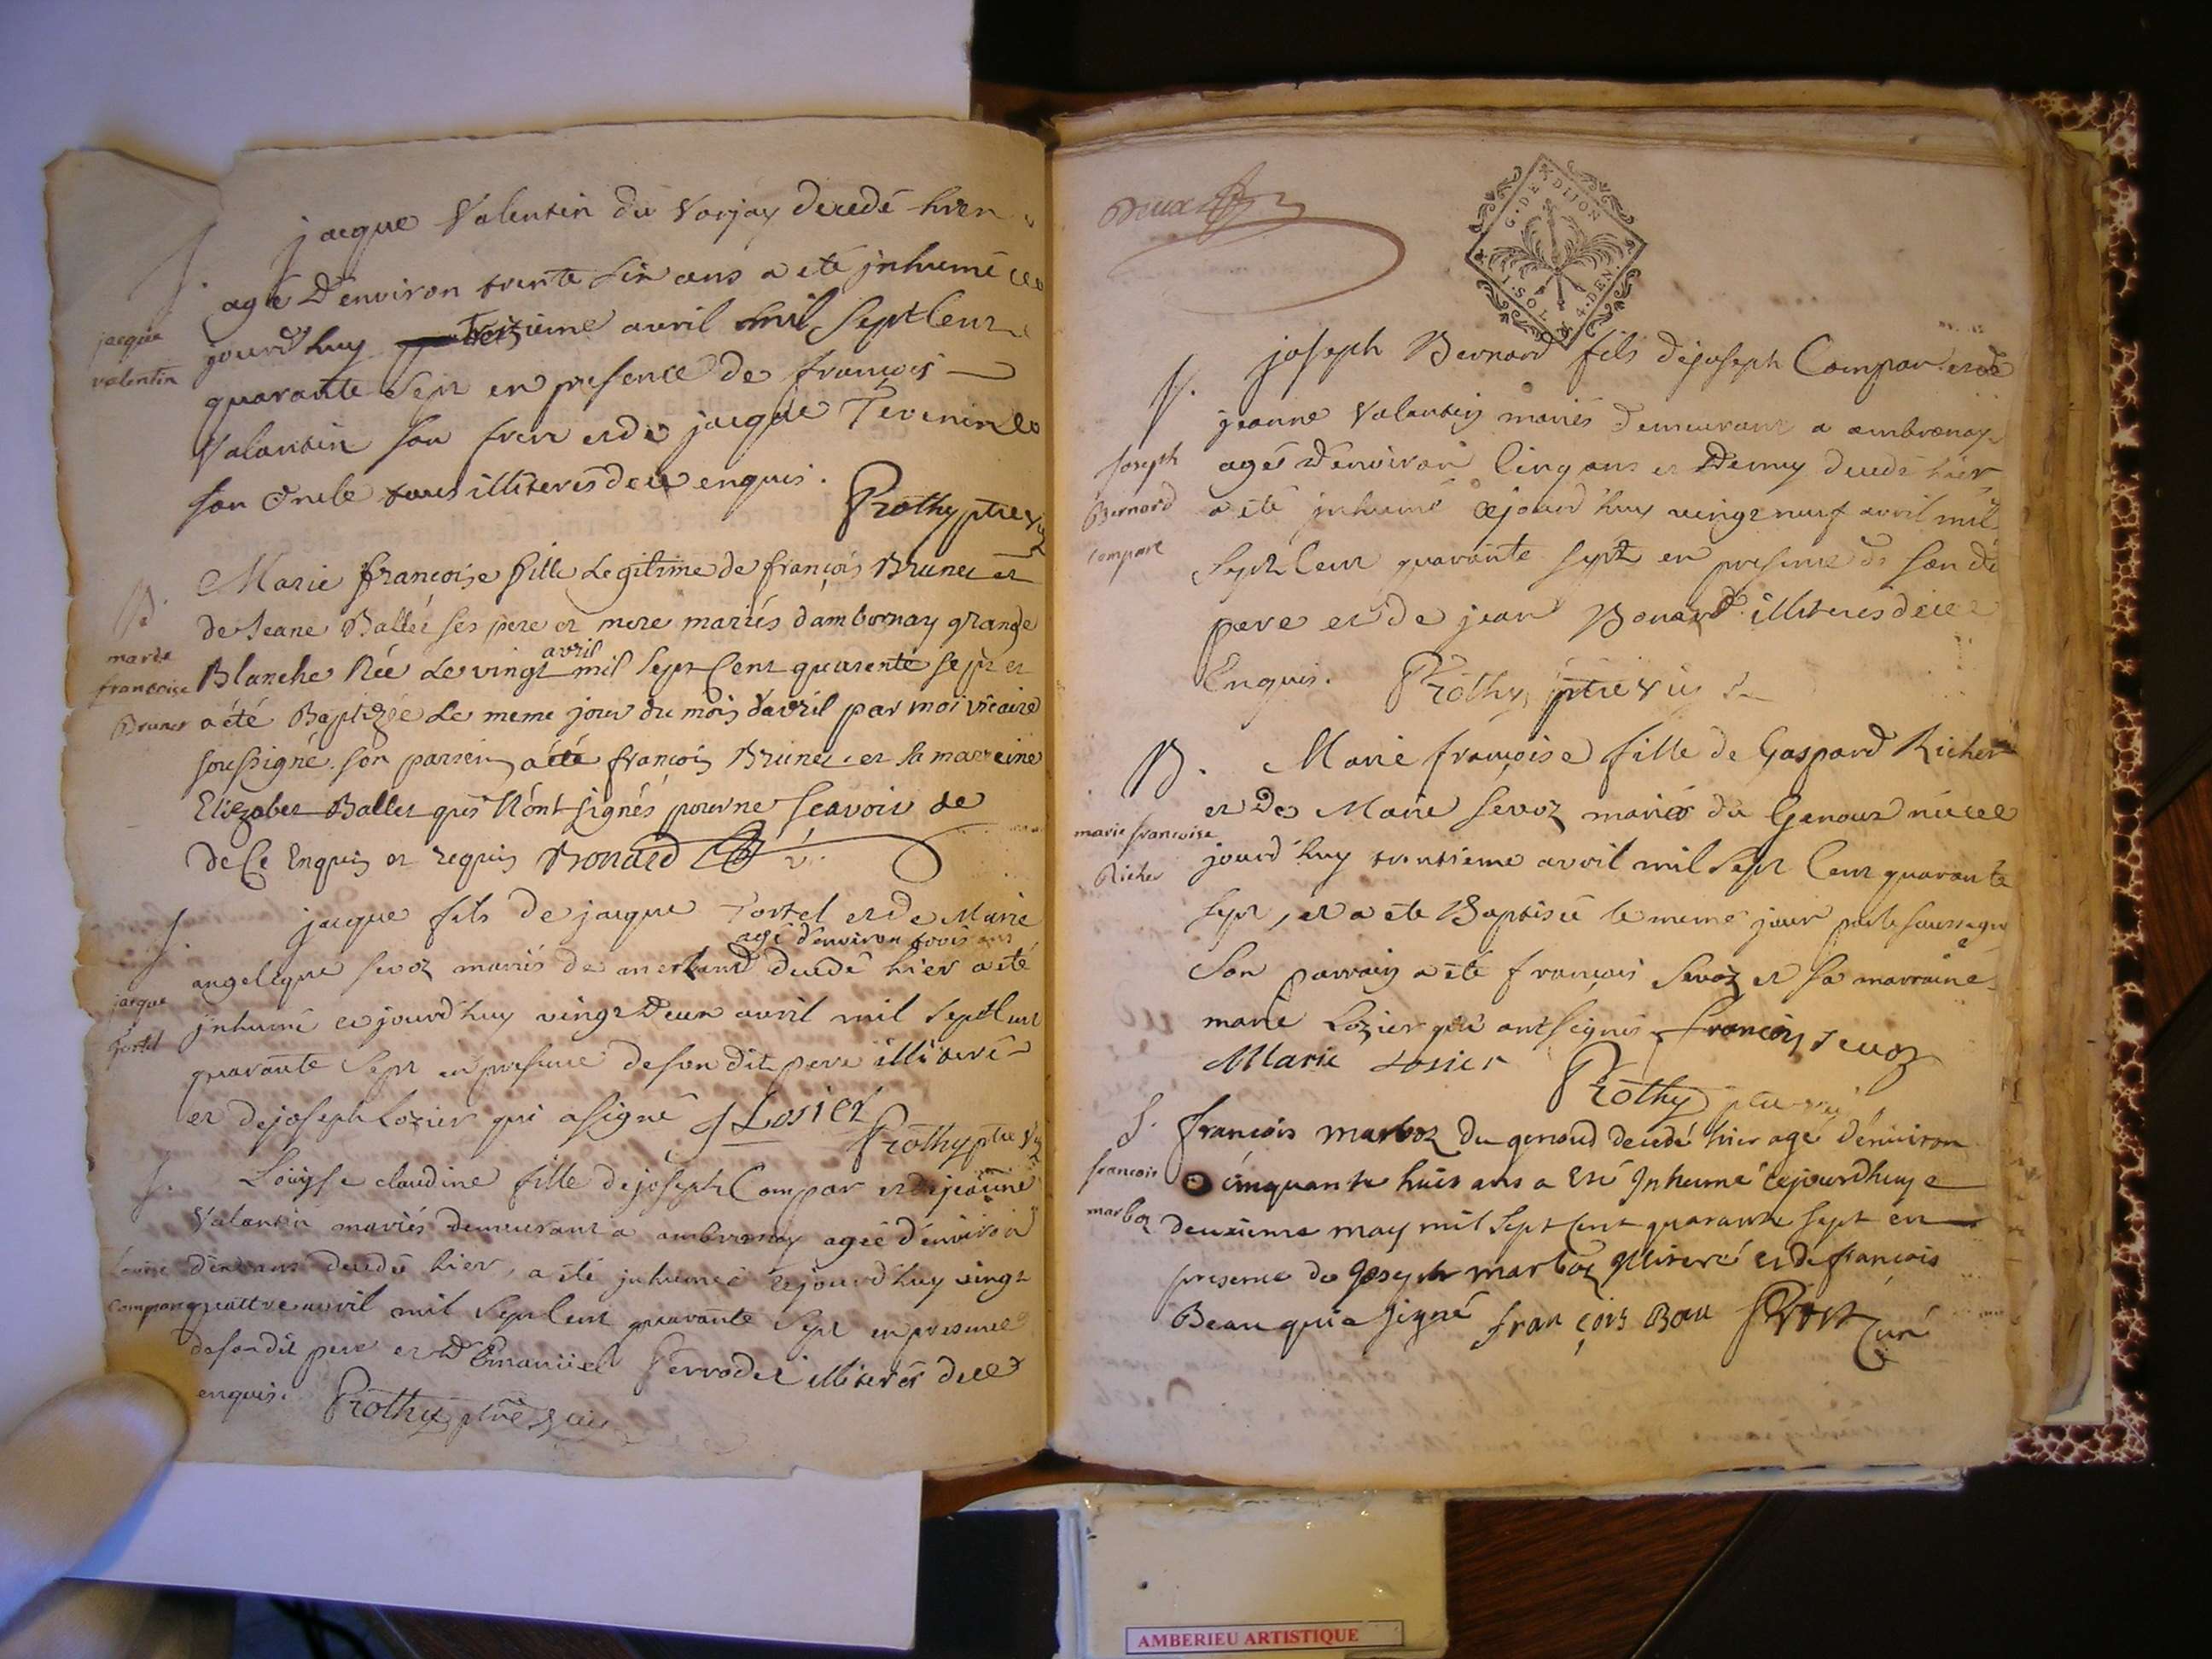 J. jacque Valentin du Varjay decedé hier
agé d'environ trente six ans a été jnhumé ce
jourd'huy Treizieme avril mil sept cent
jacque
valentin
quarante sept en presence de françois
Valantin son frere et de jacque Tevenin
son oncle tous illiterés de ce enquis.
Rothy ptre
B. Marie françoise fille Legitime de françois Brunet et
de Jeane Ballet ses pere et mere mariés d'ambornay grange
avril
Blanche Née Le vingt mil sept Cent quarente sept et
marie
francoise
Brunet
a été Baptizée Le meme jour du mois d'avril par moi vicaire
soussigné son parrein a été françois Brunet et sa marreine
Elizabet Ballet qui N'ont signés pour ne sçavoir de
de Ce Enquis et requis Bonard
J. jacque fils de jacque Tortel et de Marie
agé d'environ trois ans
angelique sevoz mariés de merland decedé hier a été
jacque
tortel
jnhumé ce jourd'huy vingt deux avril mil sept cent
quarante sept en presence de son dit pere illiteré
et de joseph Lozier qui a signé J Losier
Rothy ptre
J. Louyse claudine fille de joseph Compar et de jeanne
Valantin mariés demeurant a ambronay agée d'environ
ans decedée hier, a été jnhumée ce jourd'huy vingt
Louise
Compar
quattre avril mil sept cent quarante sept en presence
de son dit pere et d'Emanuel illiterés de ce
enquis. Rothy ptre
G. DE DIJON
1. SOL 4. DEN.
J. joseph Bernard fils de joseph Compar et de
jeanne Valantin mariés demeurant a ambronay
Joseph
Bernard
compare
agés d'environ cinq ans et Demy decedé hier
a été jnhumé ce jourd'huy vingt neuf avril mil
sept cent quarante sept en presence de son dit
pere et de jean Bonard illiterés de ce
Enquis. Rothy ptre
B. Marie françoise fille de Gaspard Richer
et De Marie sevoz mariés du Genoux née ce
marie francoise
Richer
jourd'huy trentieme avril mil sept cent quarante
sept, et a été Baptisée le meme jour par le soussigné
son parrain a été françois sevoz et sa marraine
marie Lozier qui ont signés françois sevoz
Marie Losier
Rothy
J. françois marboz du genoud decedé hier agé d'environ
francois
marboz
cinquante huit ans a Eté Inhumé cejourdhuy
deuxieme may mil sept cent quarante sept en
presence de Joseph marboz Illiteré et de françois
Beau qui a signé françois Bau
Curé
AMBERIEU ARTISTIQUE